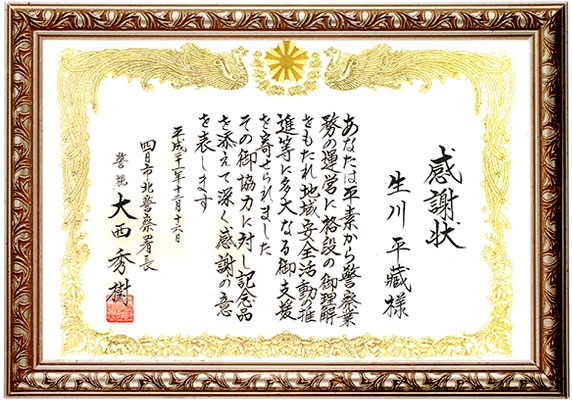 感謝状
生川平藏様
あなたは平素から警察業
務の運営に格段の御理解
をもたれ地域安全活動の推
進等に多大なる御支援
を寄せられました
その御協力に対し記念品
を添えて深く感謝の意
を表します
平成二十一年十二月十六日
四日市北警察署長
警視 大西秀樹